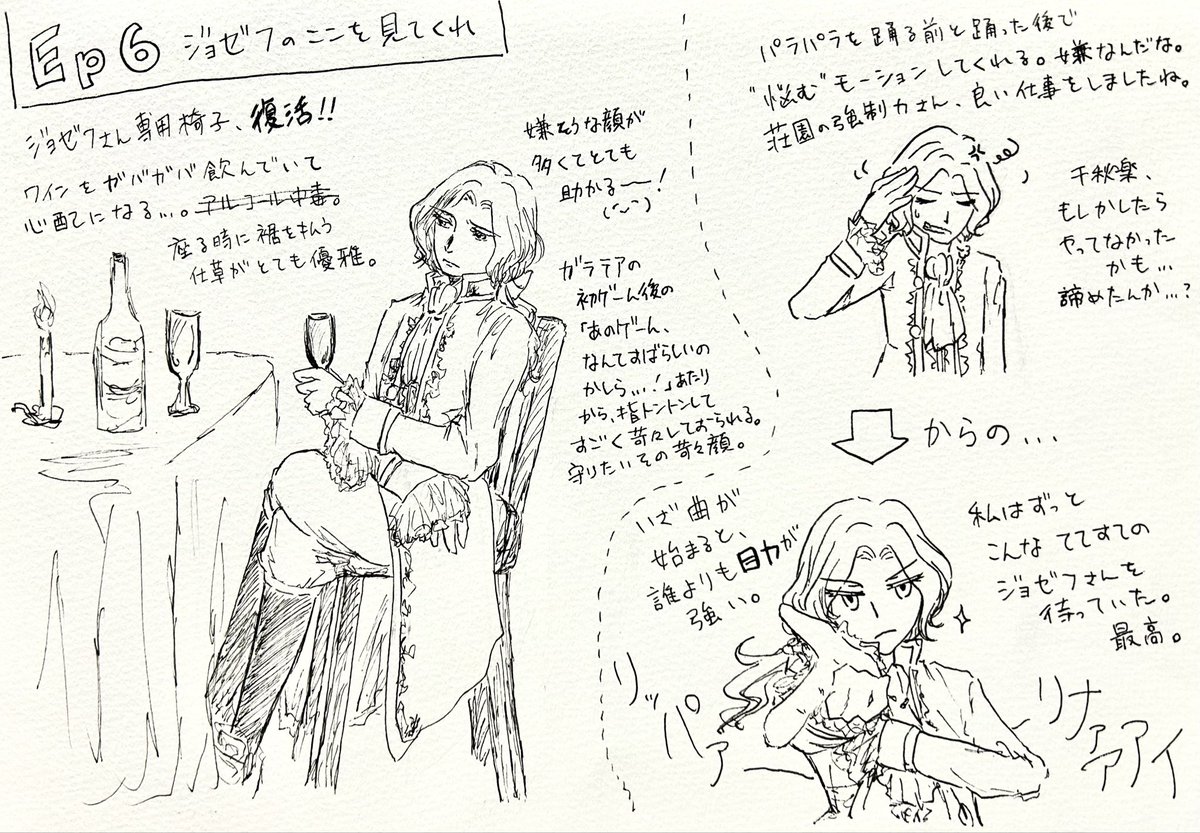 Ep6 ジョゼフのここを見てくれ
ジョゼフさん専用椅子、復活!!
ワインをガバガバ飲んでいて
心配になる…。アルコール中毒。
座る時に裾を払う
仕草がとても優雅。
嫌そうな顔が
多くてとても
助かる〜!
(˘ᵕ˘)
ガラテアの
初ゲーム後の
「あのゲーム、
なんてすばらしいの
かしら…!」あたり
から、指トントンして
すごく苛々しておられる。
守りたいその苛々顔。
パラパラを踊る前と踊った後で
"悩む"モーションしてくれる。嫌なんだな。
荘園の強制力さん、良い仕事をしましたね。
千秋楽、
もしかしたら
やってなかった
かも…
諦めたんか…?
からの…
いざ曲が
始まると、
誰よりも目力が
強い。
私はずっと
こんなててすての
ジョゼフさんを
待っていた。
最高。
リッパァー
リナァァァアイ